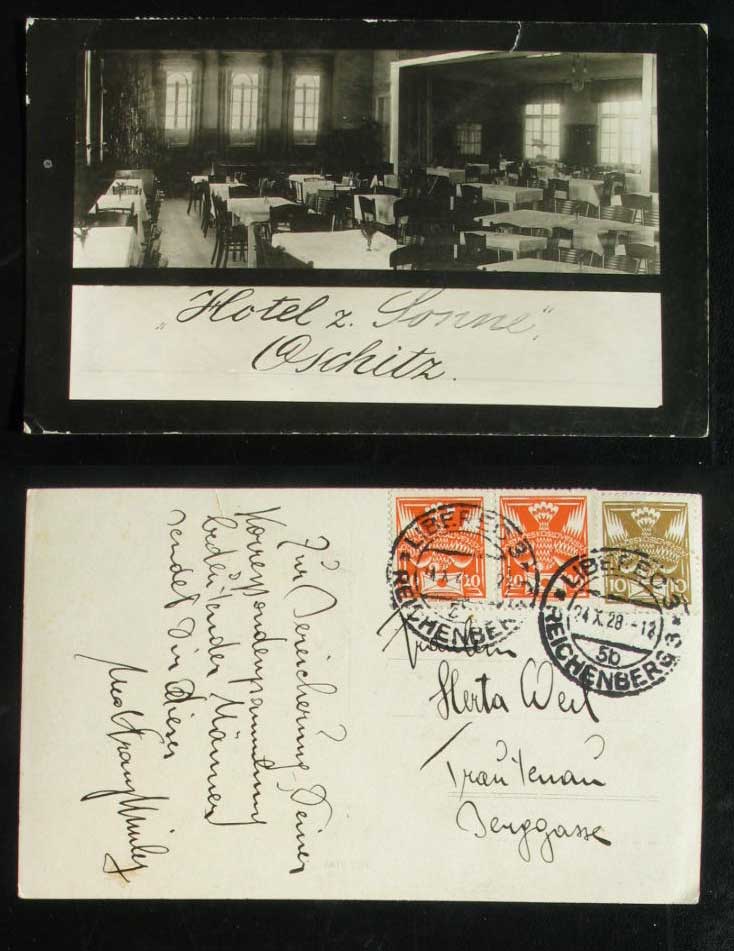 „Hotel z. Sonne“,
Oschitz.
LIBEREC 3
REICHENBERG 3
20
20
10 10
LIBEREC 3
24.X.28.-12
5b
REICHENBERG 3
Fräulein
Herta Weil
Trautenau
Berggasse
Zur Bereicherung Deiner
Korrespondenzsammlung
bedeutender Männer
sendet Dir dieses
Franz